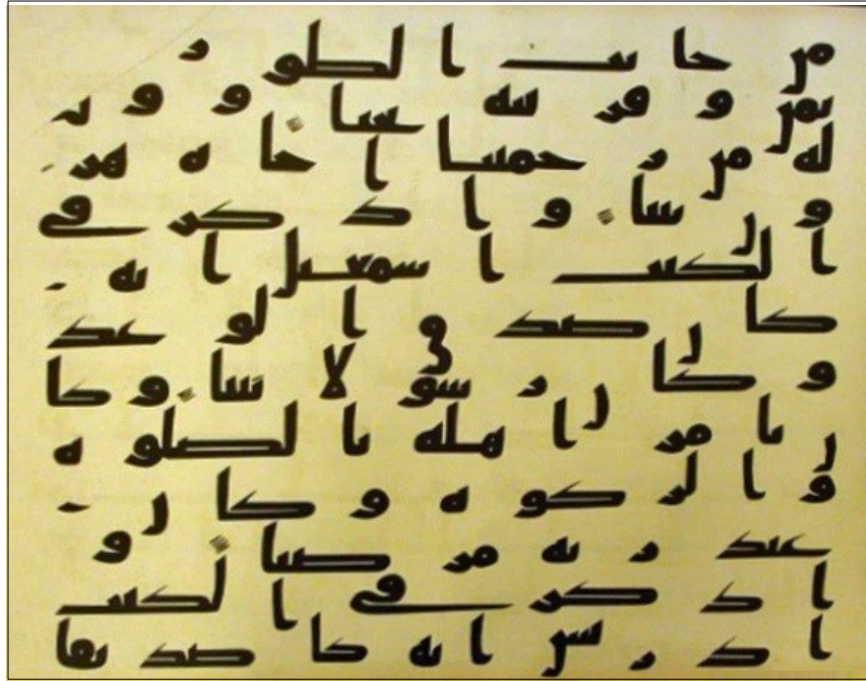 من جانب الطور
يمن وقربنه نجيا وو هبنا
له من رحمتنا اخاه هر
ون نبيا واذكر في
الكتب اسمعيل انه
كان صدق الوعد
وكان رسولا نبيا وكا
ن يامر اهله بالصلوه
والزكوه وكان
عند ربه مرضيا و
اذكر في الكتب
ادريس انه كان صديقا